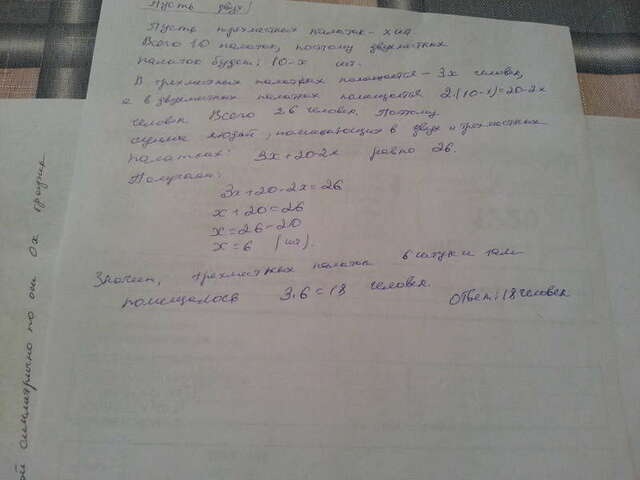 Пусть двух
Пусть трехместных палаток - x шт
Всего 10 палаток, поэтому двухместных
палаток будет: 10-x шт.
В трехместных палатках помещается - 3x человек,
а в двухместных палатках помещается 2·(10-x)=20-2x
человек Всего 26 человек. Поэтому
сумма людей, помещающихся в двух и трехместных
палатках: 3x+20-2x равно 26.
Получаем:
3x+20-2x=26
x+20=26
x=26-20
x=6 (шт).
Значит, трехместных палаток 6 штук и там
помещалось 3·6=18 человек.
Ответ: 18 человек
ой симметрично то оси Ox график